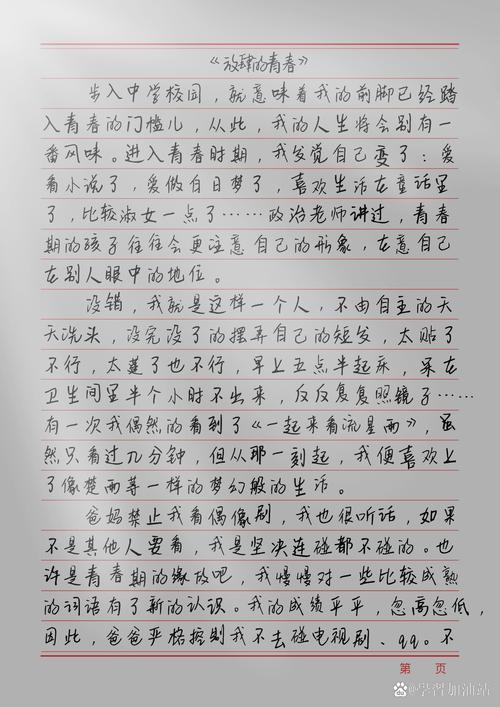 《放肆的青春》
步入中学校园，就意味着我的前脚已经踏
入青春的门槛儿，从此，我的人生将会别有一
番风味。进入青春时期，我发觉自己变了：爱
看小说了，爱做白日梦了，喜欢生活在童话里
了，比较淑女一点了……政治老师讲过，青春
期的孩子往往会更注意自己的形象，在意自己
在别人眼中的地位。
没错，我就是这样一个人，不由自主的天
天洗头，没完没了的摆弄自己的短发，太贴了
不行，太蓬了也不行，早上五点半起床，呆在
卫生间里半个小时不出来，反反复复照镜子……
有一次我偶然的看到了《一起来看流星雨》，虽
然只看过几分钟，但从那一刻起，我便喜欢上
了像楚雨荨一样的梦幻般的生活。
爸妈禁止我看偶像剧，我也很听话，如果
不是其他人要看，我是坚决连碰都不碰的。也
许是青春期的缘故吧，我慢慢对一些比较成熟
的词语有了新的认识。我的成绩平平，忽高忽低，
因此，爸爸严格控制我不去碰电视剧、qq。不
第 页
学習加油站